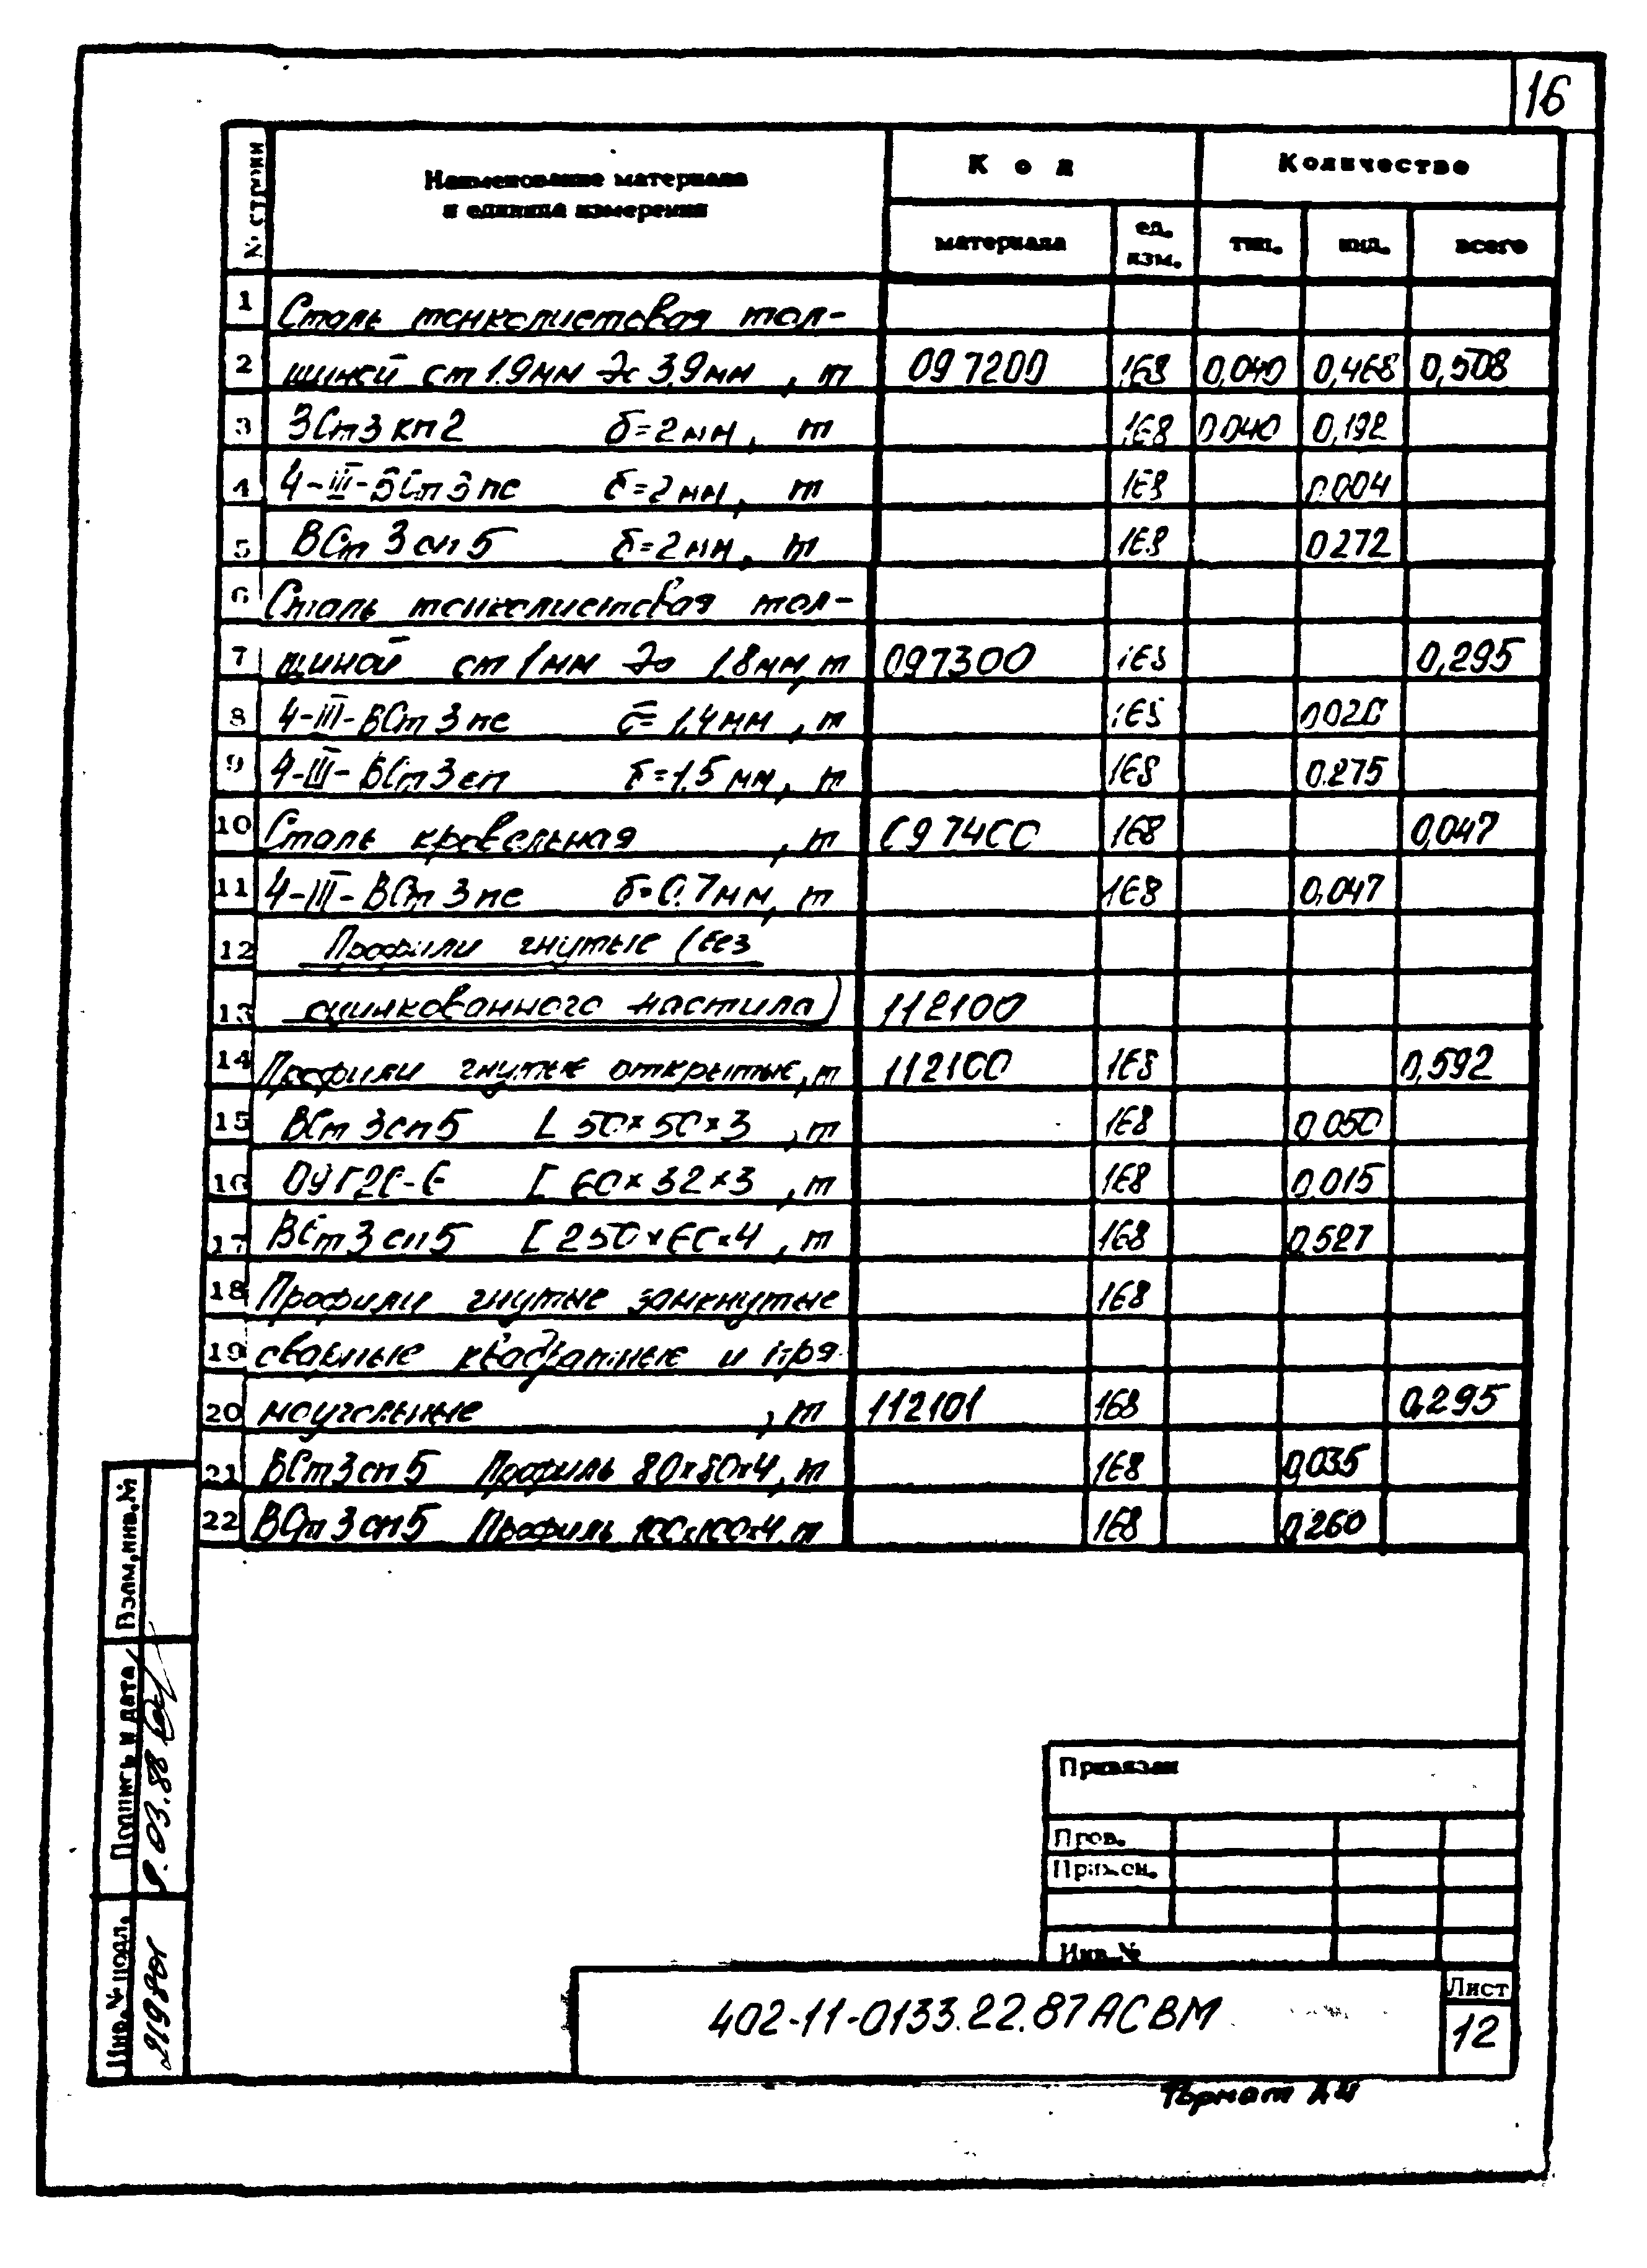 16
№ строки
Наименование материала
и единица измерения
Код
Количество
материала
ед.
изм.
тип.
инд.
всего
1 Сталь тонколистовая тол-
2 щиной от 1.9мм до 3,9мм , т 097200 168 0,040 0,468 0,508
3 ВСт3кп2 δ=2мм, т 168 0.040 0,192
4 4-III-ВСт3пс δ=2мм, т 168 0.004
5 ВСт3сп5 δ=2мм, т 168 0.272
6 Сталь тонколистовая тол-
7 щиной от 1мм до 1.8мм, т 097300 168 0,295
8 4-III-ВСт3пс δ=1,4мм, т 168 0.020
9 4-III-ВСт3сп δ=1.5мм, т 168 0.275
10 Сталь кровельная , т 097400 168 0,047
11 4-III-ВСт3пс δ=0.7мм, т 168 0,047
12 Профили гнутые (без
13 оцинкованного настила) 112100
14 Профили гнутые открытые, т 112100 168 0,592
15 ВСт3сп5 L 50×50×3 , т 168 0.050
16 09Г2С-6 [ 60×32×3 , т 168 0,015
17 ВСт3сп5 [ 250×60×4 , т 168 0,527
18 Профили гнутые замкнутые 168
19 сварные квадратные и пря-
20 моугольные , т 112101 168 0,295
21 ВСт3сп5 Профиль 80×80×4, т 168 0,035
22 ВСт3сп5 Профиль 100×100×4, т 168 0,260
Взам.инв.№
Подпись и дата
03.88
Инв.№ подл.
Привязан
Пров.
Инв.№
402-11-0133.22.87 АСВМ
Лист
12
Формат А4